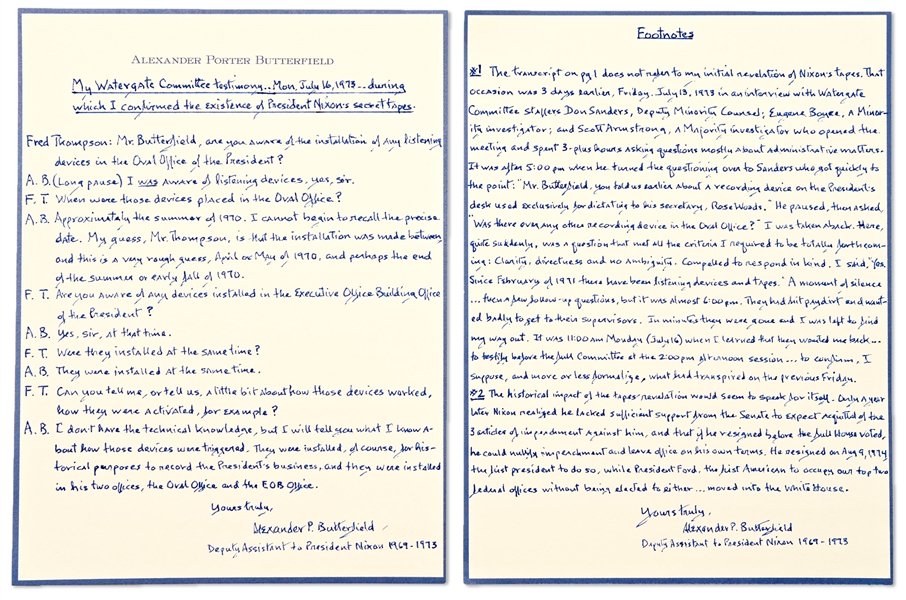 ALEXANDER PORTER BUTTERFIELD
My Watergate Committee testimony.. Mon, July 16, 1973.. during
which I confirmed the existence of President Nixon's secret tapes.
Fred Thompson: Mr. Butterfield, are you aware of the installation of any listening
devices in the Oval Office of the President?
A.B. (Long pause) I was aware of listening devices, yes, sir.
F.T. When were those devices placed in the Oval Office?
A.B. Approximately the summer of 1970. I cannot begin to recall the precise
date. My guess, Mr. Thompson, is that the installation was made between,
and this is a very rough guess, April or May of 1970, and perhaps the end
of the summer or early fall of 1970.
F.T. Are you aware of any devices installed in the Executive Office Building Office
of the President?
A.B. Yes, sir, at that time.
F.T. Were they installed at the same time?
A.B. They were installed at the same time.
F.T. Can you tell me, or tell us, a little bit about how those devices worked,
how they were activated, for example?
A.B. I don't have the technical knowledge, but I will tell you what I know a-
bout how those devices were triggered. They were installed, of course, for his-
torical purposes to record the President's business, and they were installed
in his two offices, the Oval Office and the EOB Office.
Yours truly,
Alexander P. Butterfield
Deputy Assistant to President Nixon 1969-1973
Footnotes
*1 The transcript on pg 1 does not refer to my initial revelation of Nixon's tapes. That
occasion was 3 days earlier, Friday, July 13, 1973 in an interview with Watergate
Committee staffers Don Sanders, Deputy Minority Counsel; Eugene Boyce, a Minor-
ity investigator; and Scott Armstrong, a Majority investigator who opened the
meeting and spent 3-plus hours asking questions mostly about administrative matters.
It was after 5:00 pm when he turned the questioning over to Sanders who got quickly to
the point: "Mr. Butterfield, you told us earlier about a recording device on the President's
desk used exclusively for dictating to his secretary, Rose Woods." He paused, then asked,
"Was there ever any other recording device in the Oval Office?" I was taken aback. Here,
quite suddenly, was a question that met all the criteria I required to be totally forthcom-
ing: Clarity, directness and no ambiguity. Compelled to respond in kind, I said, "Yes.
Since February of 1971 there have been listening devices and tapes." A moment of silence
... then a few follow-up questions, but it was almost 6:00 pm. They had hit paydirt and want-
ed badly to get to their supervisors. In minutes they were gone and I was left to find
my way out. It was 11:00 am Monday (July 16) when I learned that they wanted me back...
to testify before the full Committee at the 2:00 pm afternoon session... to confirm, I
suppose, and more or less formalize, what had transpired on the previous Friday.
*2 The historical impact of the tapes' revelation would seem to speak for itself. Only a year
later Nixon realized he lacked sufficient support from the Senate to expect acquittal of the
3 articles of impeachment against him, and that if he resigned before the full House voted,
he could nullify impeachment and leave office on his own terms. He resigned on Aug 9, 1974
the first president to do so, while President Ford, the first American to occupy our top two
federal offices without being elected to either... moved into the White House.
Yours truly,
Alexander P. Butterfield
Deputy Assistant to President Nixon 1969-1973